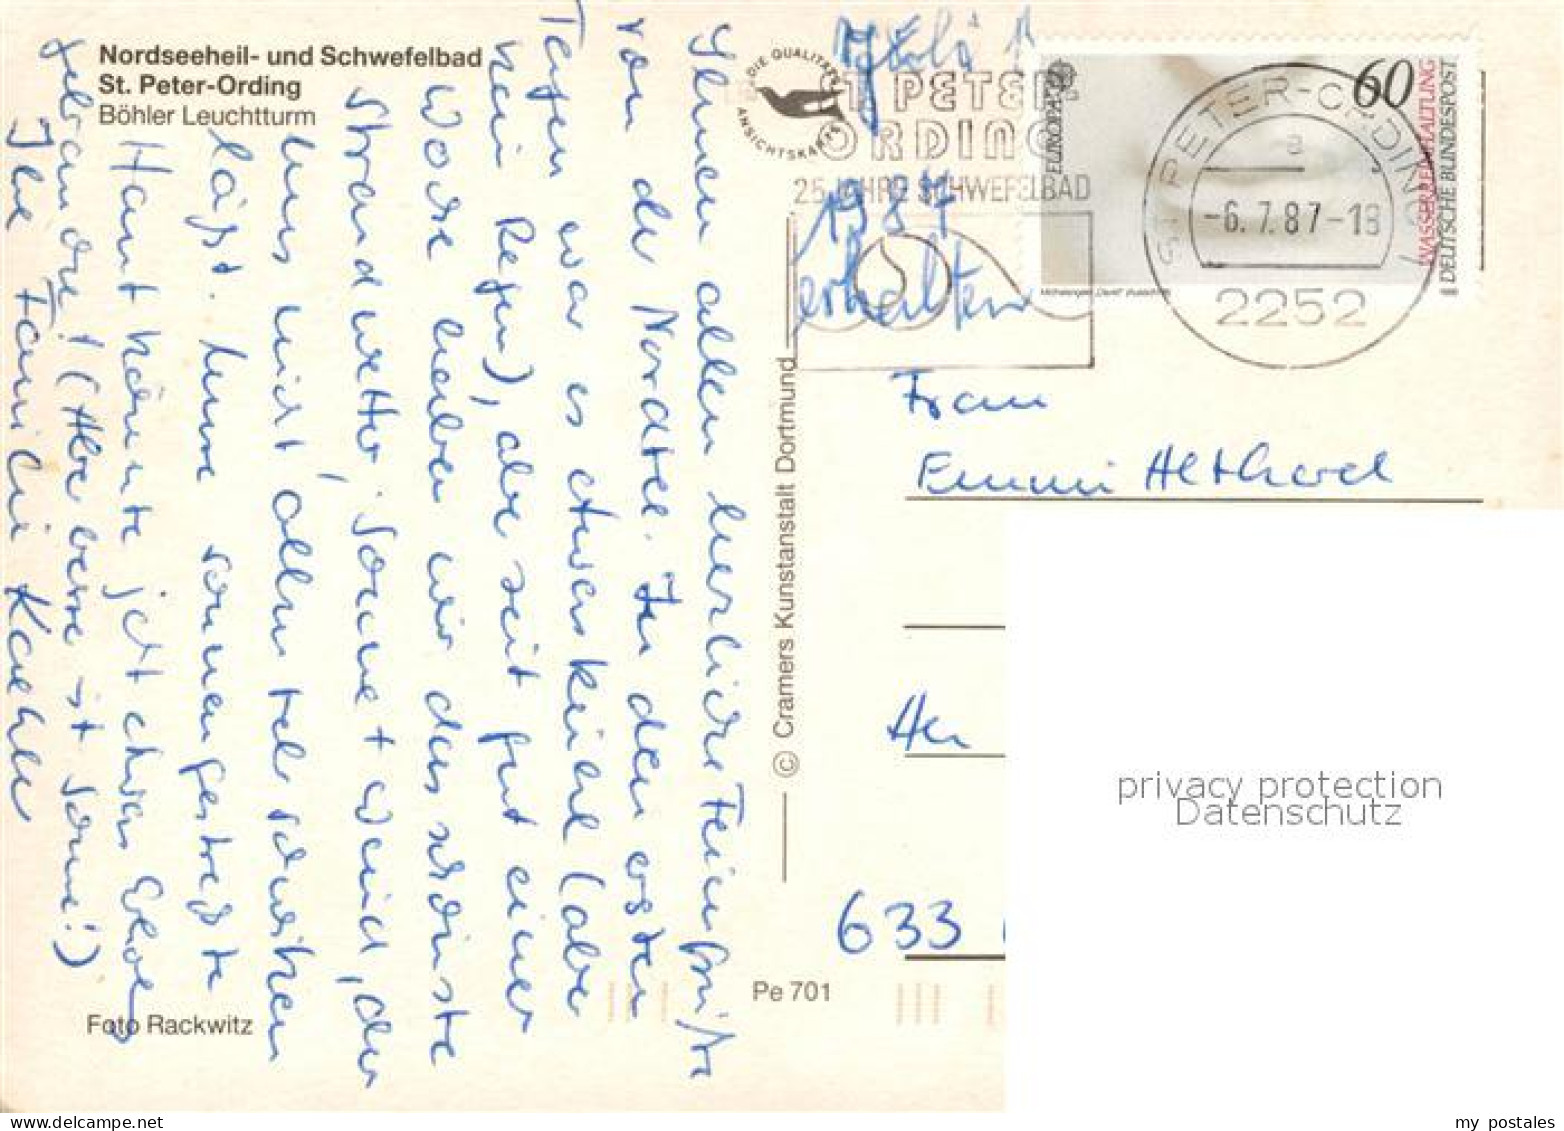 Nordseeheil- und Schwefelbad
St. Peter-Ording
Böhler Leuchtturm
Ihnen allen herzliche Feriengrüße
von der Nordsee. In den ersten
Tagen war es etwas kühl (aber
kein Regen), aber seit gut einer
Woche haben wir das schönste
Strandwetter, Sonne + Wind, der
uns nicht allzu sehr schwitzen
läßt. Unsere sonnengestreßte
Haut könnte jetzt etwas
gebrauchen! (Aber besser ist Sonne!)
Ihre Familie Koehler
Foto Rackwitz
Pe 701
© Cramers Kunstanstalt Dortmund
DIE QUALITÄTS
ANSICHTSKARTE
ST. PETER
ORDING
25 JAHRE SCHWEFELBAD
1987
erhalten
EUROPA CEPT
60
WASSERREINHALTUNG
DEUTSCHE BUNDESPOST
ST. PETER-ORDING 1
a
-6.7.87-18
2252
Frau
Emmi Althard
633
privacy protection
Datenschutz
my postales